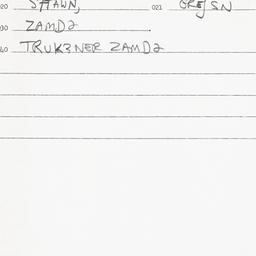 020 SHAWN, 021 GREJSN
030 ZAMDZ
040 TRUKZNER ZAMDZ